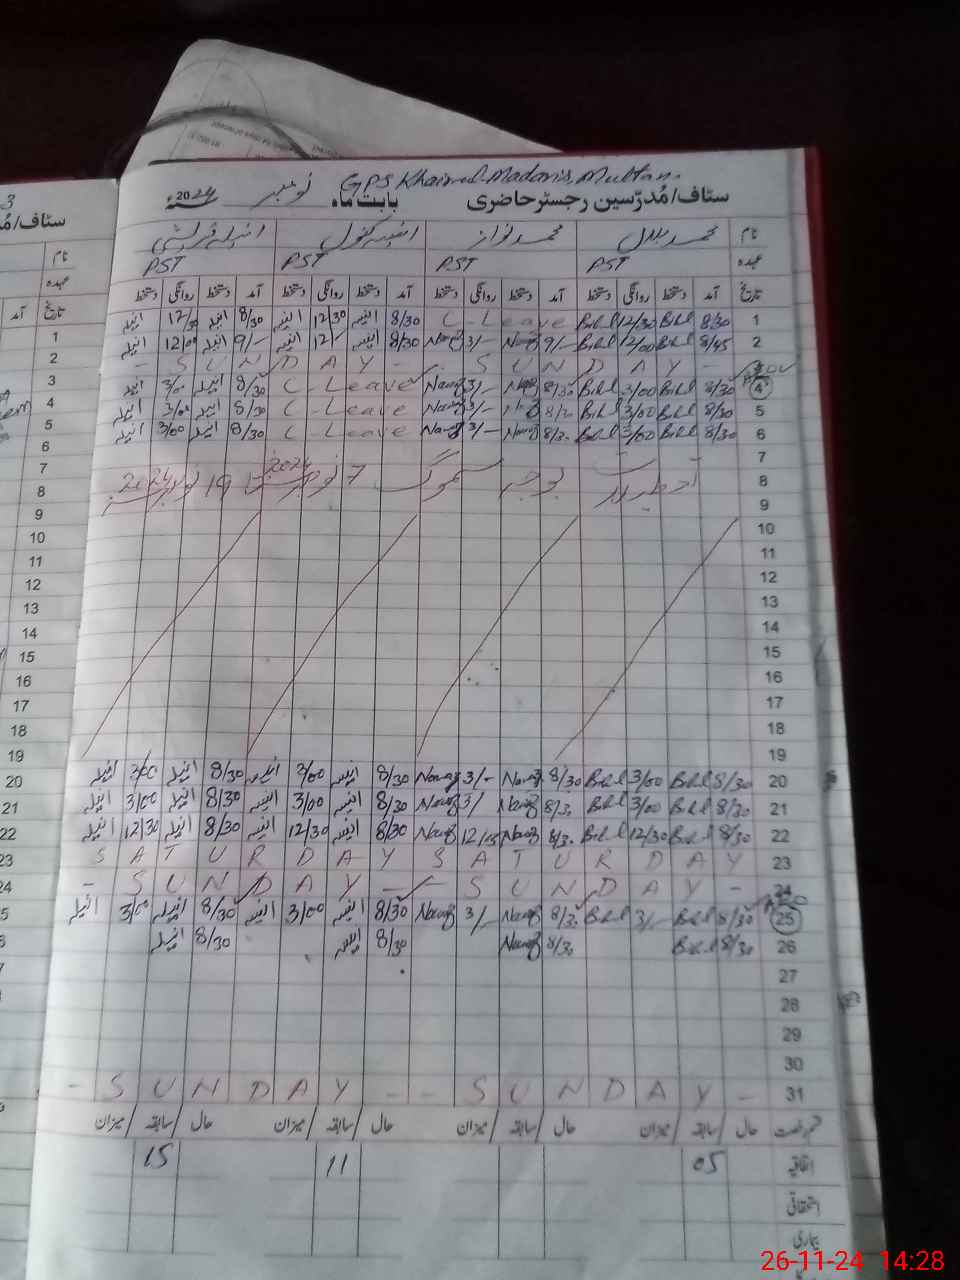 GPS Khairul Madaris, Multan.
سٹاف/مُدرّسین رجسٹر حاضری بابت ماہ نومبر 2024ء
نام محمد بلال محمد نواز
عہدہ PST PST PST PST
تاریخ آمد دستخط روانگی دستخط آمد دستخط روانگی دستخط آمد دستخط روانگی دستخط آمد دستخط روانگی دستخط
1 8/30 Bilal 12/30 Bilal C-Leave 8/30 انیسہ 12/30 انیسہ 8/30 انیلہ 12/30 انیلہ
2 8/45 Bilal 12/00 Bilal 9/- Nawaz 3/- Nawaz 8/30 انیسہ 12/- انیسہ 9/- انیلہ 12/00 انیلہ
- SUNDAY - - SUNDAY -
4 8/30 Bilal 3/00 Bilal 8/30 Nawaz 3/- Nawaz C-Leave 8/30 انیلہ 3/00 انیلہ
5 8/30 Bilal 3/00 Bilal 8/30 Nawaz 3/- Nawaz C-Leave 8/30 انیلہ 3/00 انیلہ
6 8/30 Bilal 3/00 Bilal 8/30 Nawaz 3/- Nawaz C-Leave 8/30 انیلہ 3/00 انیلہ
7
8 تعطیلات بوجہ سموگ 7 نومبر 2024 تا 19 نومبر 2024
9
10
11
12
13
14
15
16
17
18
19
20 8/30 Bilal 3/00 Bilal 8/30 Nawaz 3/- Nawaz 8/30 انیسہ 3/00 انیسہ 8/30 انیلہ 3/00 انیلہ
21 8/30 Bilal 3/00 Bilal 8/30 Nawaz 3/ Nawaz 8/30 انیسہ 3/00 انیسہ 8/30 انیلہ 3/00 انیلہ
22 8/30 Bilal 12/30 Bilal 8/30 Nawaz Nawaz 8/30 انیسہ 12/30 انیسہ 8/30 انیلہ 12/30 انیلہ
23 SATURDAY SATURDAY
24 - SUNDAY - - SUNDAY -
25 8/30 Bilal 3/- Bilal 8/30 Nawaz 3/- Nawaz 8/30 انیسہ 3/00 انیسہ 8/30 انیلہ 3/00 انیلہ
26 8/30 Bilal 8/30 Nawaz 8/30 انیسہ 8/30 انیلہ
27
28
29
30
31 - SUNDAY - - SUNDAY -
قسم رخصت حال / سابقہ / میزان حال / سابقہ / میزان حال / سابقہ / میزان حال / سابقہ / میزان
اتفاقیہ 05 11 15
استحقاقی
بیماری
سٹاف/مُد
نام
عہدہ
تاریخ آمد
1
2
3
4
5
6
7
8
9
10
11
12
13
14
15
16
17
18
19
20
21
22
23
24
26-11-24 14:28